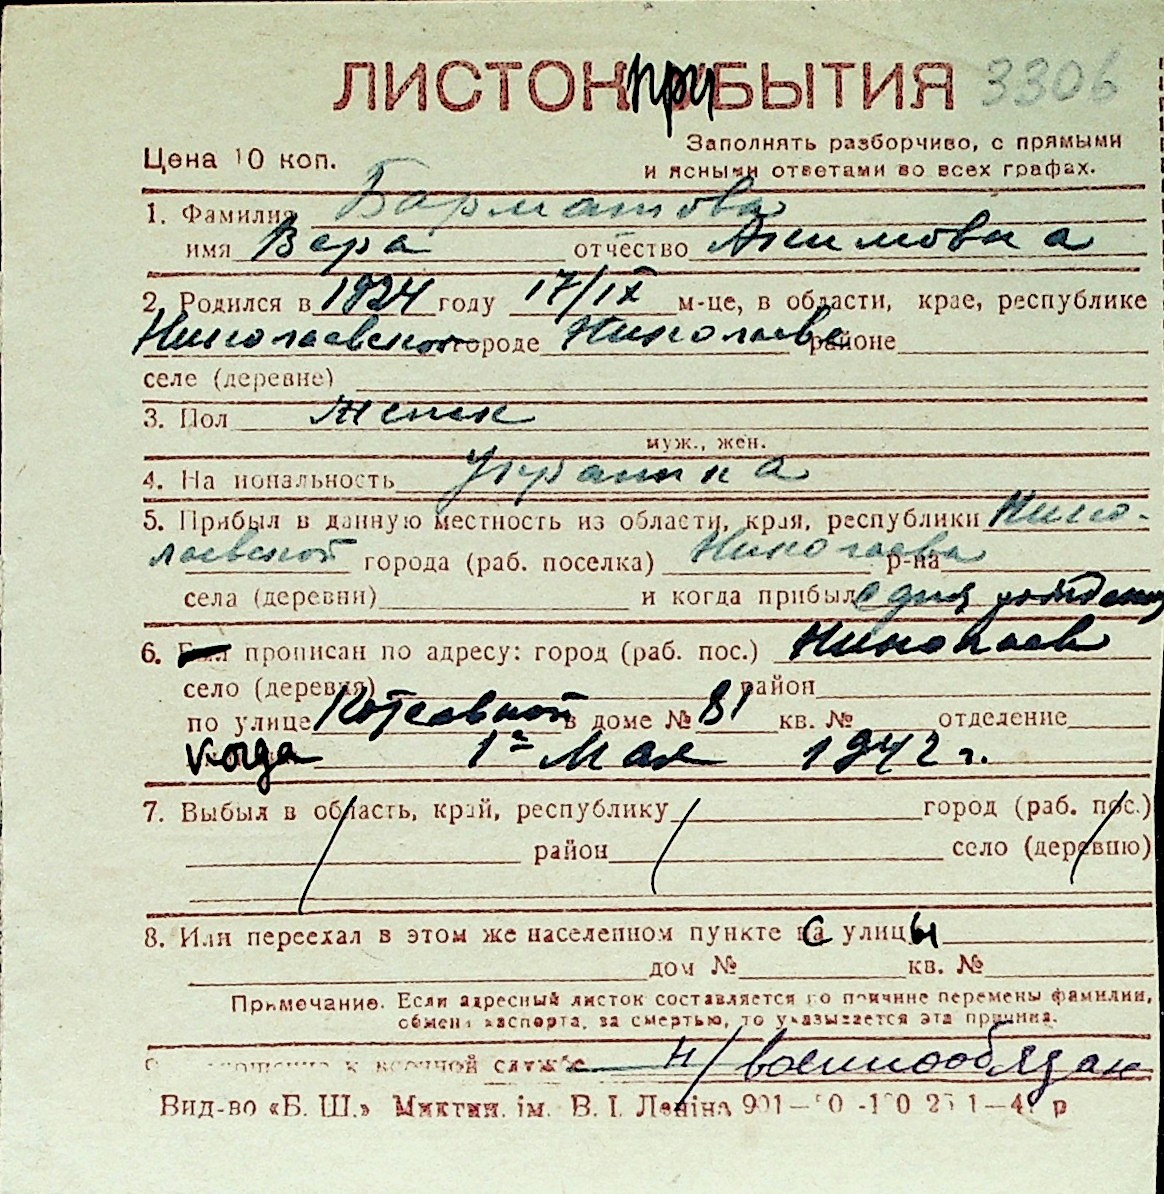 ЛИСТОК ПРИБЫТИЯ 3306
Цена 10 коп.
Заполнять разборчиво, с прямыми
и ясными ответами во всех графах.
1. Фамилия Барматова
имя Вера отчество Акимовна
2. Родился в 1924 году 17/IX м-це, в области, крае, республике
Николаевской городе Николаеве районе
селе (деревне)
3. Пол женск
муж., жен.
4. Национальность украинка
5. Прибыл в данную местность из области, края, республики Нико-
лаевской города (раб. поселка) Николаева р-на
села (деревни) и когда прибыл с дня рождения
6. Был прописан по адресу: город (раб. пос.) Николаев
село (деревня) район
по улице Котельной в доме № 81 кв. № отделение
когда 1го Мая 1942 г.
7. Выбыл в область, край, республику город (раб. пос.)
район село (деревню)
8. Или переехал в этом же населенном пункте с улицы
дом № кв. №
Примечание. Если адресный листок составляется по причине перемены фамилии,
обмена паспорта, за смертью, то указывается эта причина.
9. отношение к военной службе н/военнообязан
Вид-во «Б. Ш.» ім. В. І. Леніна